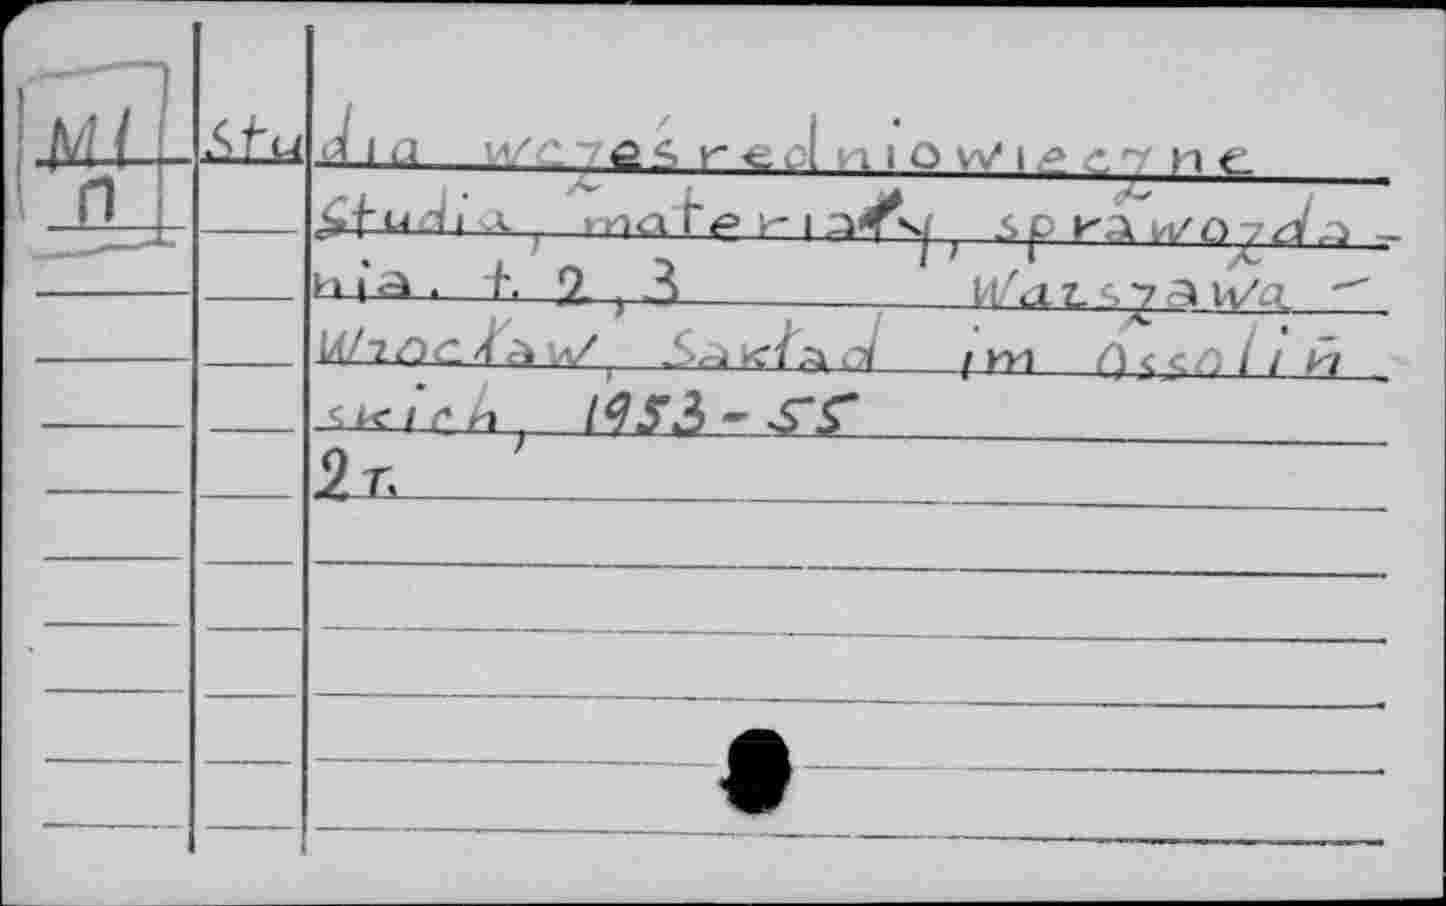 M1 Studia wczesśredniowieczne
П Studia, materiały, sprawozda-
nia. t. 2, 3 Warszawa -
Wrocław, Sakład im Ossoliń-
skich, 1953-55
2 т.